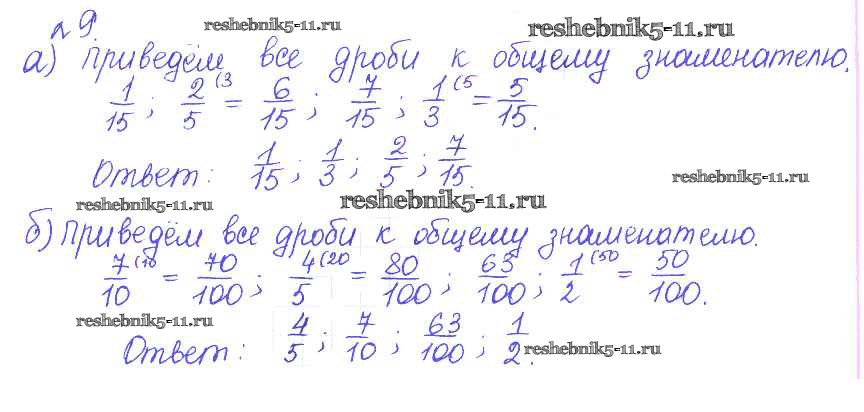 № 9. reshebnik5-11.ru reshebnik5-11.ru
а) Приведём все дроби к общему знаменателю.
1/15; 2/5 (3 = 6/15; 7/15; 1/3 (5 = 5/15.
Ответ: 1/15; 1/3; 2/5; 7/15. reshebnik5-11.ru
reshebnik5-11.ru reshebnik5-11.ru
б) Приведём все дроби к общему знаменателю.
7/10 (10 = 70/100; 4/5 (20 = 80/100; 63/100; 1/2 (50 = 50/100.
reshebnik5-11.ru
Ответ: 4/5; 7/10; 63/100; 1/2. reshebnik5-11.ru